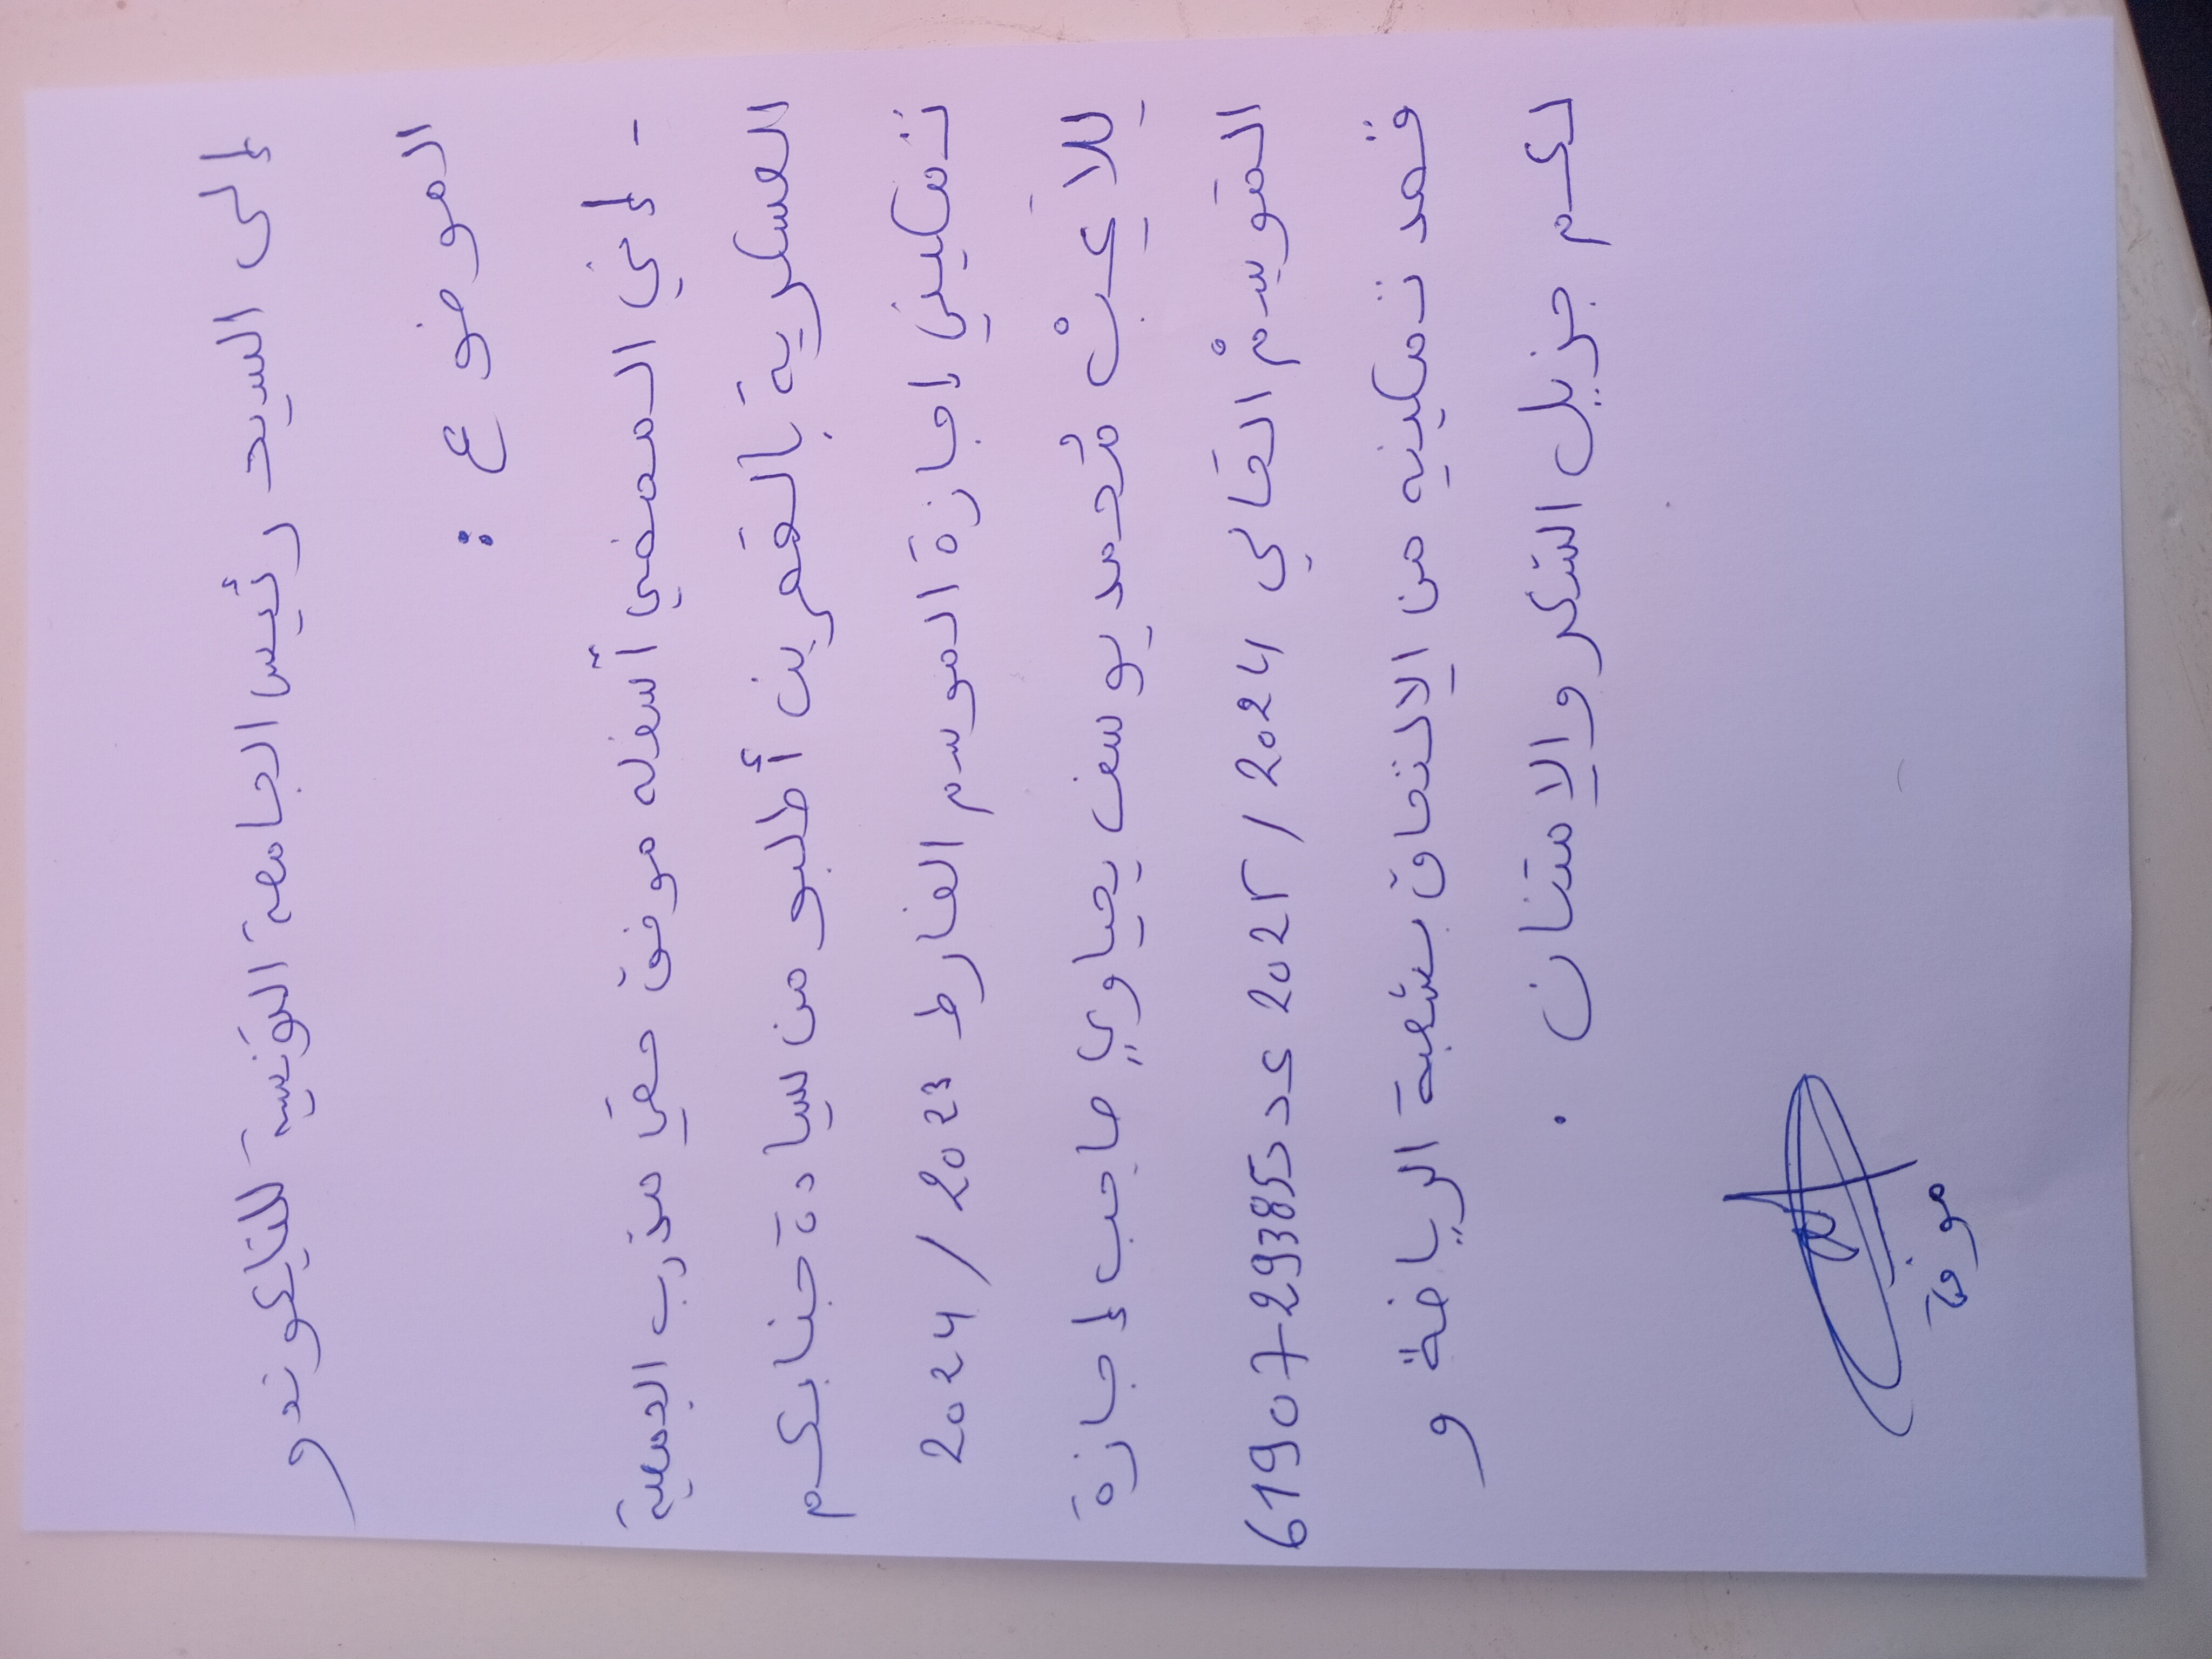 إلى السيد رئيس الجامعة التونسية للتايكوندو
الموضوع :
- إني الممضي أسفله موفق حقي مدرب الجمعية
العسكرية بالقصرين أطلبو من سيادة جنابكم
تمكيني إجازة الموسم الفارط 2023 / 2024
للاعبْ محمد يوسف يحياوي صاحب إجازة
الموسمْ الحالي 2024 / 2025 عدد 293855-61907
قصد تمكينه من الالتحاق بشعبة الرياضة و
لكم جزيل الشكر والامتنان .
موفق